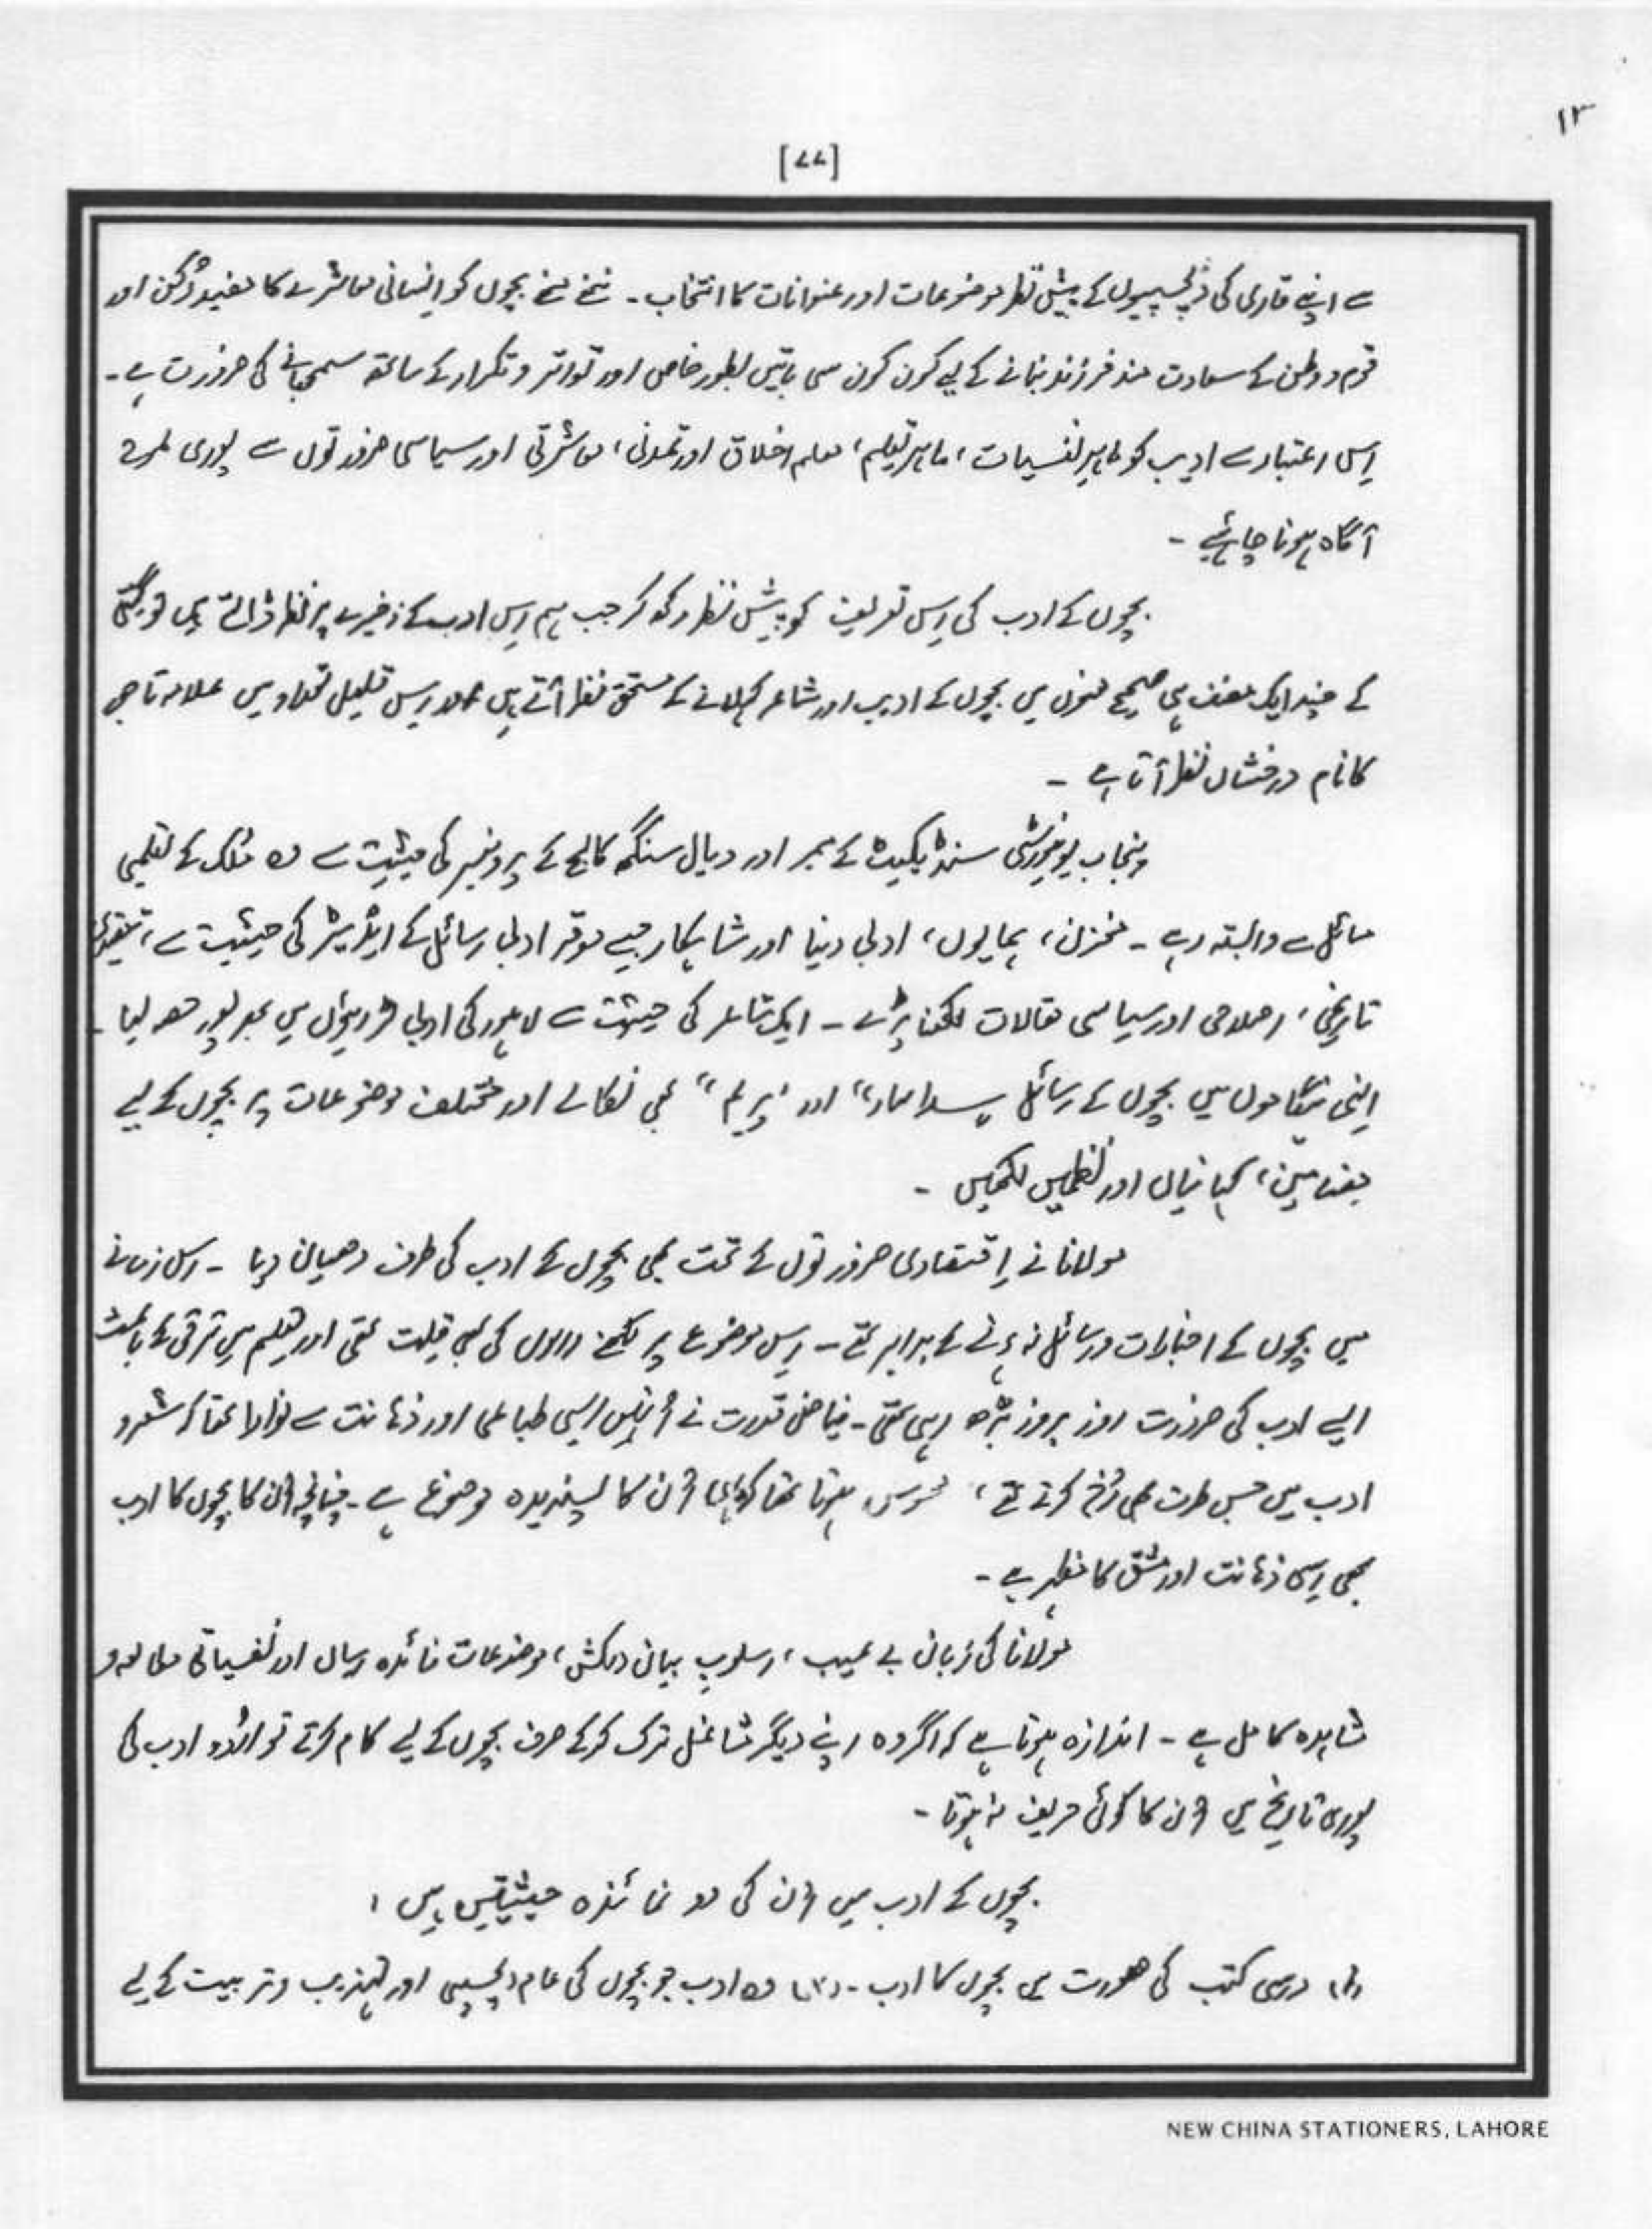 ۱۳
[۷۷]
سے اپنے قاری کی دلچسپیوں کے پیش نظر موضوعات اور عنوانات کا انتخاب ۔ ننھے ننھے بچوں کو انسانی معاشرے کا مفید رُکن اور
قوم و وطن کے سعادت مند فرزند بنانے کے لیے کون کون سی باتیں بطور خاص اور تواتر و تکرار کے ساتھ سمجھانے کی ضرورت ہے ۔
اِس اعتبار سے ادیب کو ماہرِ نفسیات، ماہرِ تعلیم، معلم اخلاق اور تمدنی، معاشرتی اور سیاسی ضرورتوں سے پوری طرح
آگاہ ہونا چاہئیے ۔
بچوں کے ادب کی اِس تعریف کو پیش نظر رکھ کر جب ہم اِس ادب کے ذخیرے پر نظر ڈالتے ہیں تو گنتی
کے چند ایک مصنف ہی صحیح معنوں میں بچوں کے ادیب اور شاعر کہلانے کے مستحق نظر آتے ہیں اور اِس قلیل تعداد میں علامہ تاجور
کا نام درخشاں نظر آتا ہے ۔
پنجاب یونیورسٹی سنڈیکیٹ کے ممبر اور دیال سنگھ کالج کے پروفیسر کی حیثیت سے وہ ملک کے تعلیمی
مسائل سے وابستہ رہے ۔ مخزن، ہمایوں، ادبی دنیا اور شاہکار جیسے موقر ادبی رسائل کے ایڈیٹر کی حیثیت سے، تنقیدی
تاریخی، اصلاحی اور سیاسی مقالات لکھنا پڑے ۔ ایک شاعر کی حیثیت سے لاہور کی ادبی سرگرمیوں میں بھرپور حصہ لیا ۔
اِنہی ہنگاموں میں بچوں کے رسائل اور "پریم" بھی نکالے اور مختلف موضوعات پر بچوں کے لیے
مضامین، کہانیاں اور نظمیں لکھیں ۔
مولانا نے اِقتصادی ضرورتوں کے تحت بھی بچوں کے ادب کی طرف دھیان دیا ۔ اس زمانے
میں بچوں کے اخبارات و رسائل نہ ہونے کے برابر تھے ۔ اِس موضوع پر لکھنے والوں کی بھی قِلت تھی اور تعلیم میں ترقی کے باعث
ایسے ادب کی ضرورت روز بروز بڑھ رہی تھی ۔ فیاضِ قدرت نے اُنہیں ایسی طباعی اور ذہانت سے نوازا تھا کہ شعر و
ادب میں جس طرف بھی رُخ کرتے تھے، محسوس ہوتا تھا کہ یہی اُن کا پسندیدہ موضوع ہے ۔ چنانچہ اُن کا بچوں کا ادب
بھی اِسی ذہانت اور مشق کا مظہر ہے ۔
مولانا کی زبان بے عیب، اسلوبِ بیان دلکش، موضوعات فائدہ رساں اور نفسیاتی مطالعہ و
مشاہدہ کامل ہے ۔ اندازہ ہوتا ہے کہ اگر وہ اپنے دیگر مشاغل ترک کرکے صرف بچوں کے لیے کام کرتے تو اُردو ادب کی
پوری تاریخ میں اُن کا کوئی حریف نہ ہوتا ۔
بچوں کے ادب میں اُن کی دو نمائندہ حیثیتیں ہیں ؛
(۱) درسی کتب کی صورت میں بچوں کا ادب ۔ (۲) وہ ادب جو بچوں کی عام دلچسپی اور تہذیب و تربیت کے لیے
NEW CHINA STATIONERS, LAHORE